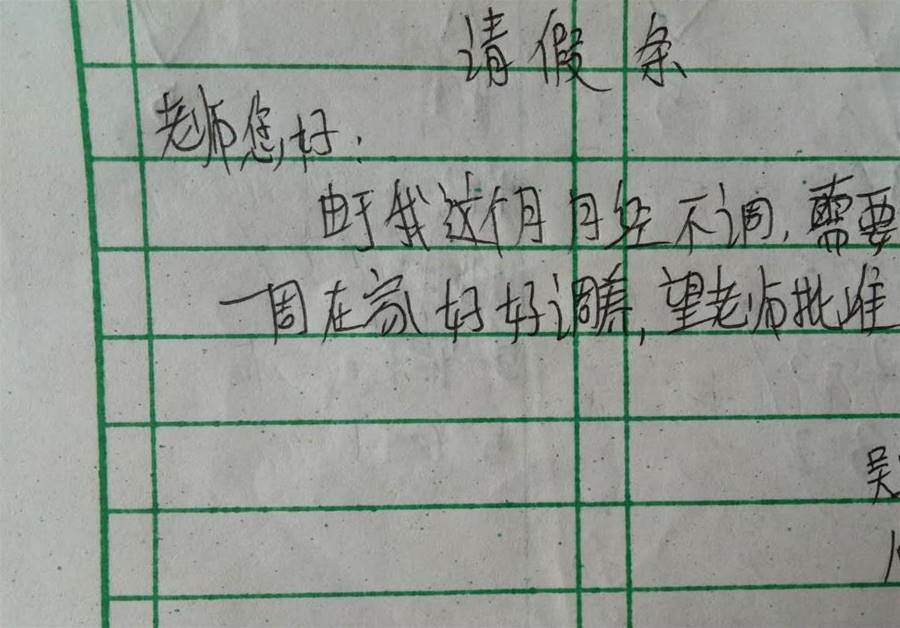 请假条
老师您好:
由于我这个月月经不调,需要
一周在家好好调养,望老师批准
吴